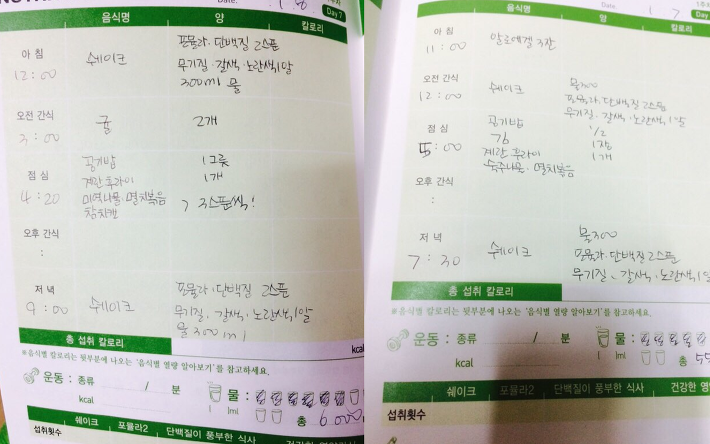 Date.
Day 7
음식명 양 칼로리
아 침
12:00
쉐이크
포뮬라·단백질 2스푼
무기질·갈색·노란색,1알
300ml 물
오전 간식
3:00
귤
2개
점 심
4:20
공기밥 1그릇
계란후라이 1개
미역나물·멸치볶음
참치캔
3스푼씩!
오후 간식
:
저 녁
9:00
쉐이크
포뮬라·단백질 2스푼
무기질·갈색·노란색,1알
물 300ml
총 섭취 칼로리
kcal
※음식별 칼로리는 뒷부분에 나오는 '음식별 열량 알아보기'를 참고하세요.
운동 : 종류 / 분
kcal
물 :
ml
총 6000
쉐이크 포뮬라2 단백질이 풍부한 식사
섭취횟수
Date. 1 7
Day
음식명 양 칼로리
아 침
11:00
알로에겔 3잔
오전 간식
12:00
쉐이크
물300
포뮬라·단백질 2스푼
무기질·갈색·노란색,1알
점 심
5:00
공기밥 1/2
김 1장
계란 후라이 1개
숙주나물·멸치볶음
오후 간식
:
저 녁
7:30
쉐이크
물300
포뮬라·단백질 2스푼
무기질、갈색·노란색,1알
총 섭취 칼로리
※음식별 칼로리는 뒷부분에 나오는 '음식별 열량 알아보기'를 참고하세요.
운동 : 종류 / 분
kcal
물 :
ml
총 55
쉐이크 포뮬라2 단백질이 풍부한 식사 건강한
섭취횟수